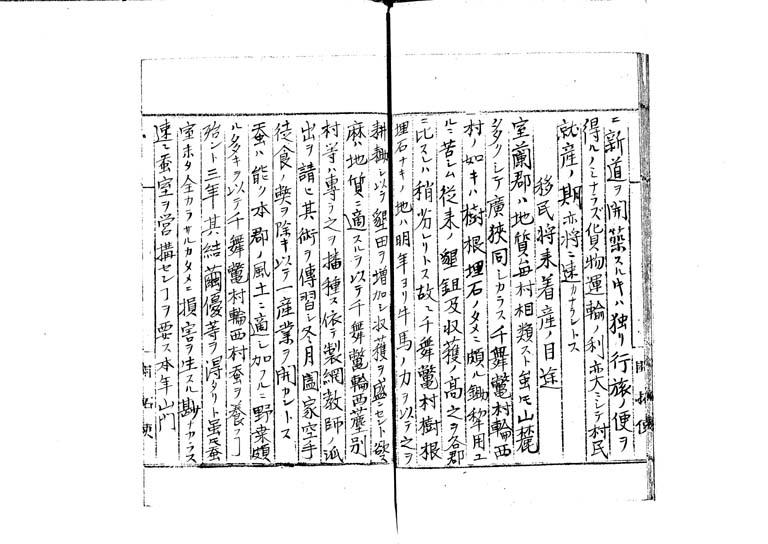 ニ新道ヲ開築スル牛ハ独リ行旅ノ便ヲ
得ルノミナラズ貨物運輪ノ利亦大ニシテ村民
就産ノ期亦将ニ速カナラントス
移民将来着産ノ目途
室蘭郡ハ地質毎村相類ス虽モ山麓
多クシテ廣狭同シカラス千舞鼈村輪西
村ノ如キハ樹根埋石ノタメニ頗ル鋤犂用ユ
ルニ苦シム従来ノ墾鉏及収獲ノ高之ヲ各郡
ニ比スレハ稍劣レリトス故ニ千舞鼈村樹根
埋石ナキノ地ハ明年ヨリ牛馬ノ力ヲ以テ之ヲ
耕耡シ以テ墾田ヲ増加シ収獲ヲ盛ンセント欲ス
麻ハ地質ニ適スルヲ以テ千舞鼈輪西蘑別
村等ハ專ラ之ヲ播種ス依テ製網教師ノ派
出ヲ請ヒ其術ヲ傳習シ冬月闔家空手
徒食ノ弊ヲ除キ以テ一産業ヲ開カントス
蚕ハ能ク本郡ノ風土ニ適シ加フルニ野桑頗
ル多キヲ以テ千舞鼈村輪西村蚕ヲ養フヿ
殆ント三年其結繭優等ヲ得タリト虽モ蚕
室未タ全カラサルカタメニ損害ヲ生スル尠ナカラス
速ニ蚕室ヲ営構センヿヲ要ス本年山門
開拓使